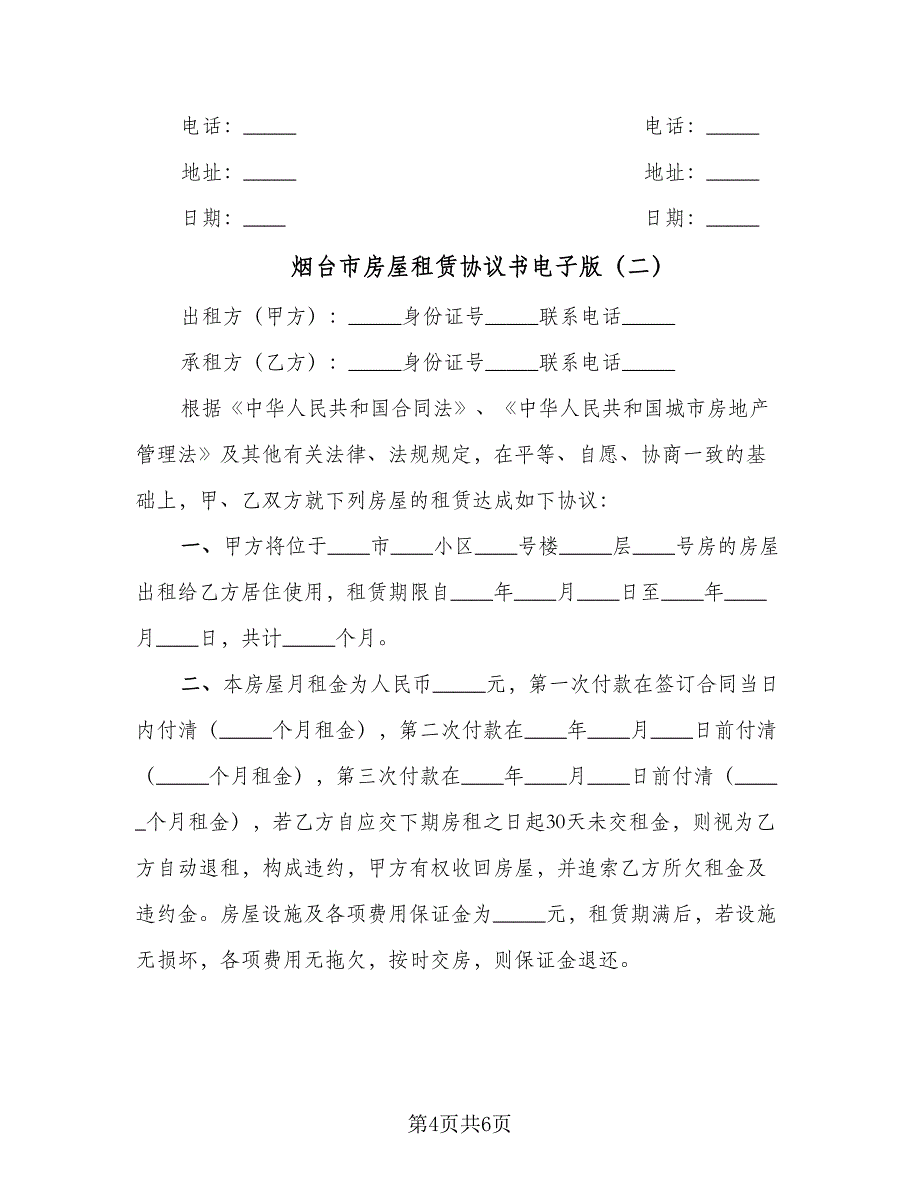 电话：_____ 电话：_____
地址：_____ 地址：_____
日期：____ 日期：_____
烟台市房屋租赁协议书电子版（二）
出租方（甲方）：_____身份证号_____联系电话_____
承租方（乙方）：_____身份证号_____联系电话_____
根据《中华人民共和国合同法》、《中华人民共和国城市房地产
管理法》及其他有关法律、法规规定，在平等、自愿、协商一致的基
础上，甲、乙双方就下列房屋的租赁达成如下协议：
一、甲方将位于____市____小区____号楼_____层____号房的房屋
出租给乙方居住使用，租赁期限自____年____月____日至____年____
月____日，共计_____个月。
二、本房屋月租金为人民币_____元，第一次付款在签订合同当日
内付清（_____个月租金），第二次付款在____年____月____日前付清
（_____个月租金），第三次付款在____年____月____日前付清（____
_个月租金），若乙方自应交下期房租之日起30天未交租金，则视为乙
方自动退租，构成违约，甲方有权收回房屋，并追索乙方所欠租金及
违约金。房屋设施及各项费用保证金为_____元，租赁期满后，若设施
无损坏，各项费用无拖欠，按时交房，则保证金退还。
第4页共6页